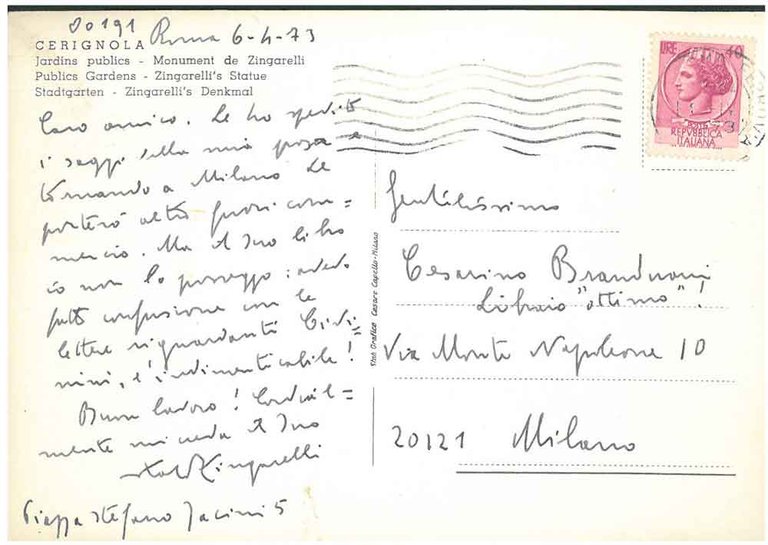 00191 Roma 6-4-73
CERIGNOLA
Jardins publics - Monument de Zingarelli
Publics Gardens - Zingarelli's Statue
Stadtgarten - Zingarelli's Denkmal
Caro amico. Le ho spedito
i saggi della mia prosa e
tornando a Milano Le
porterò altro fuori com=
mercio. Ma il Suo libro
io non lo posseggo:
fatto confusione con le
lettere riguardanti Civi=
nini, l'indimenticabile!
Buon lavoro! Cordial=
mente mi creda il Suo
Italo Zingarelli
Piazza Stefano Jacini 5
Stab. Grafico Cesare Capello-Milano
LIRE
POSTE
REPVBBLICA
ITALIANA
Gentilissimo
Cesarino Branduani
Libraio "ottimo"!
Via Monte Napoleone 10
20121 Milano